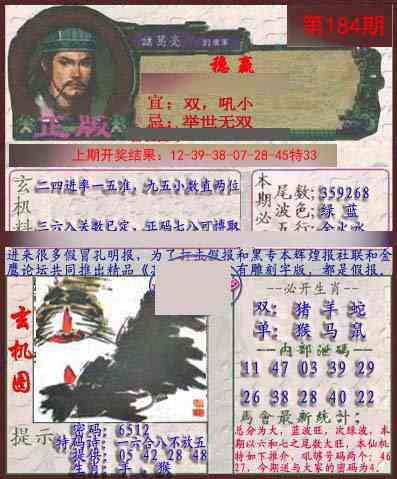 第184期
諸葛亮
稳赢
宜：双，吼小
忌：举世无双
正版
上期开奖结果：12-39-38-07-28-45特33
玄机料
二四进率一五准，九五小数直两位
三六八关数已定，正码七八可博取
本期必
尾数：359268
波色：绿 蓝
五行：金火水
进来很多假冒孔明报，为了打击假报和黑专本辉煌报社联和金
鹰论坛共同推出精品《
有雕刻字版，都是假报。
玄机图
--必开生肖--
双：猪羊蛇
单：猴马鼠
--内部泄码--
11 47 03 39 29
26 38 28 40 22
马會最新统计：
总分为大，蓝波旺，次绿波，本
期以六和七之尾数大旺，本仙机
特如下推介，吼够号码两个：46
27，今期送与大家的密码为4。
提示
密码：6512
特码诗：一六合八不放五
提供：05 42 28 48
生肖：羊，猴